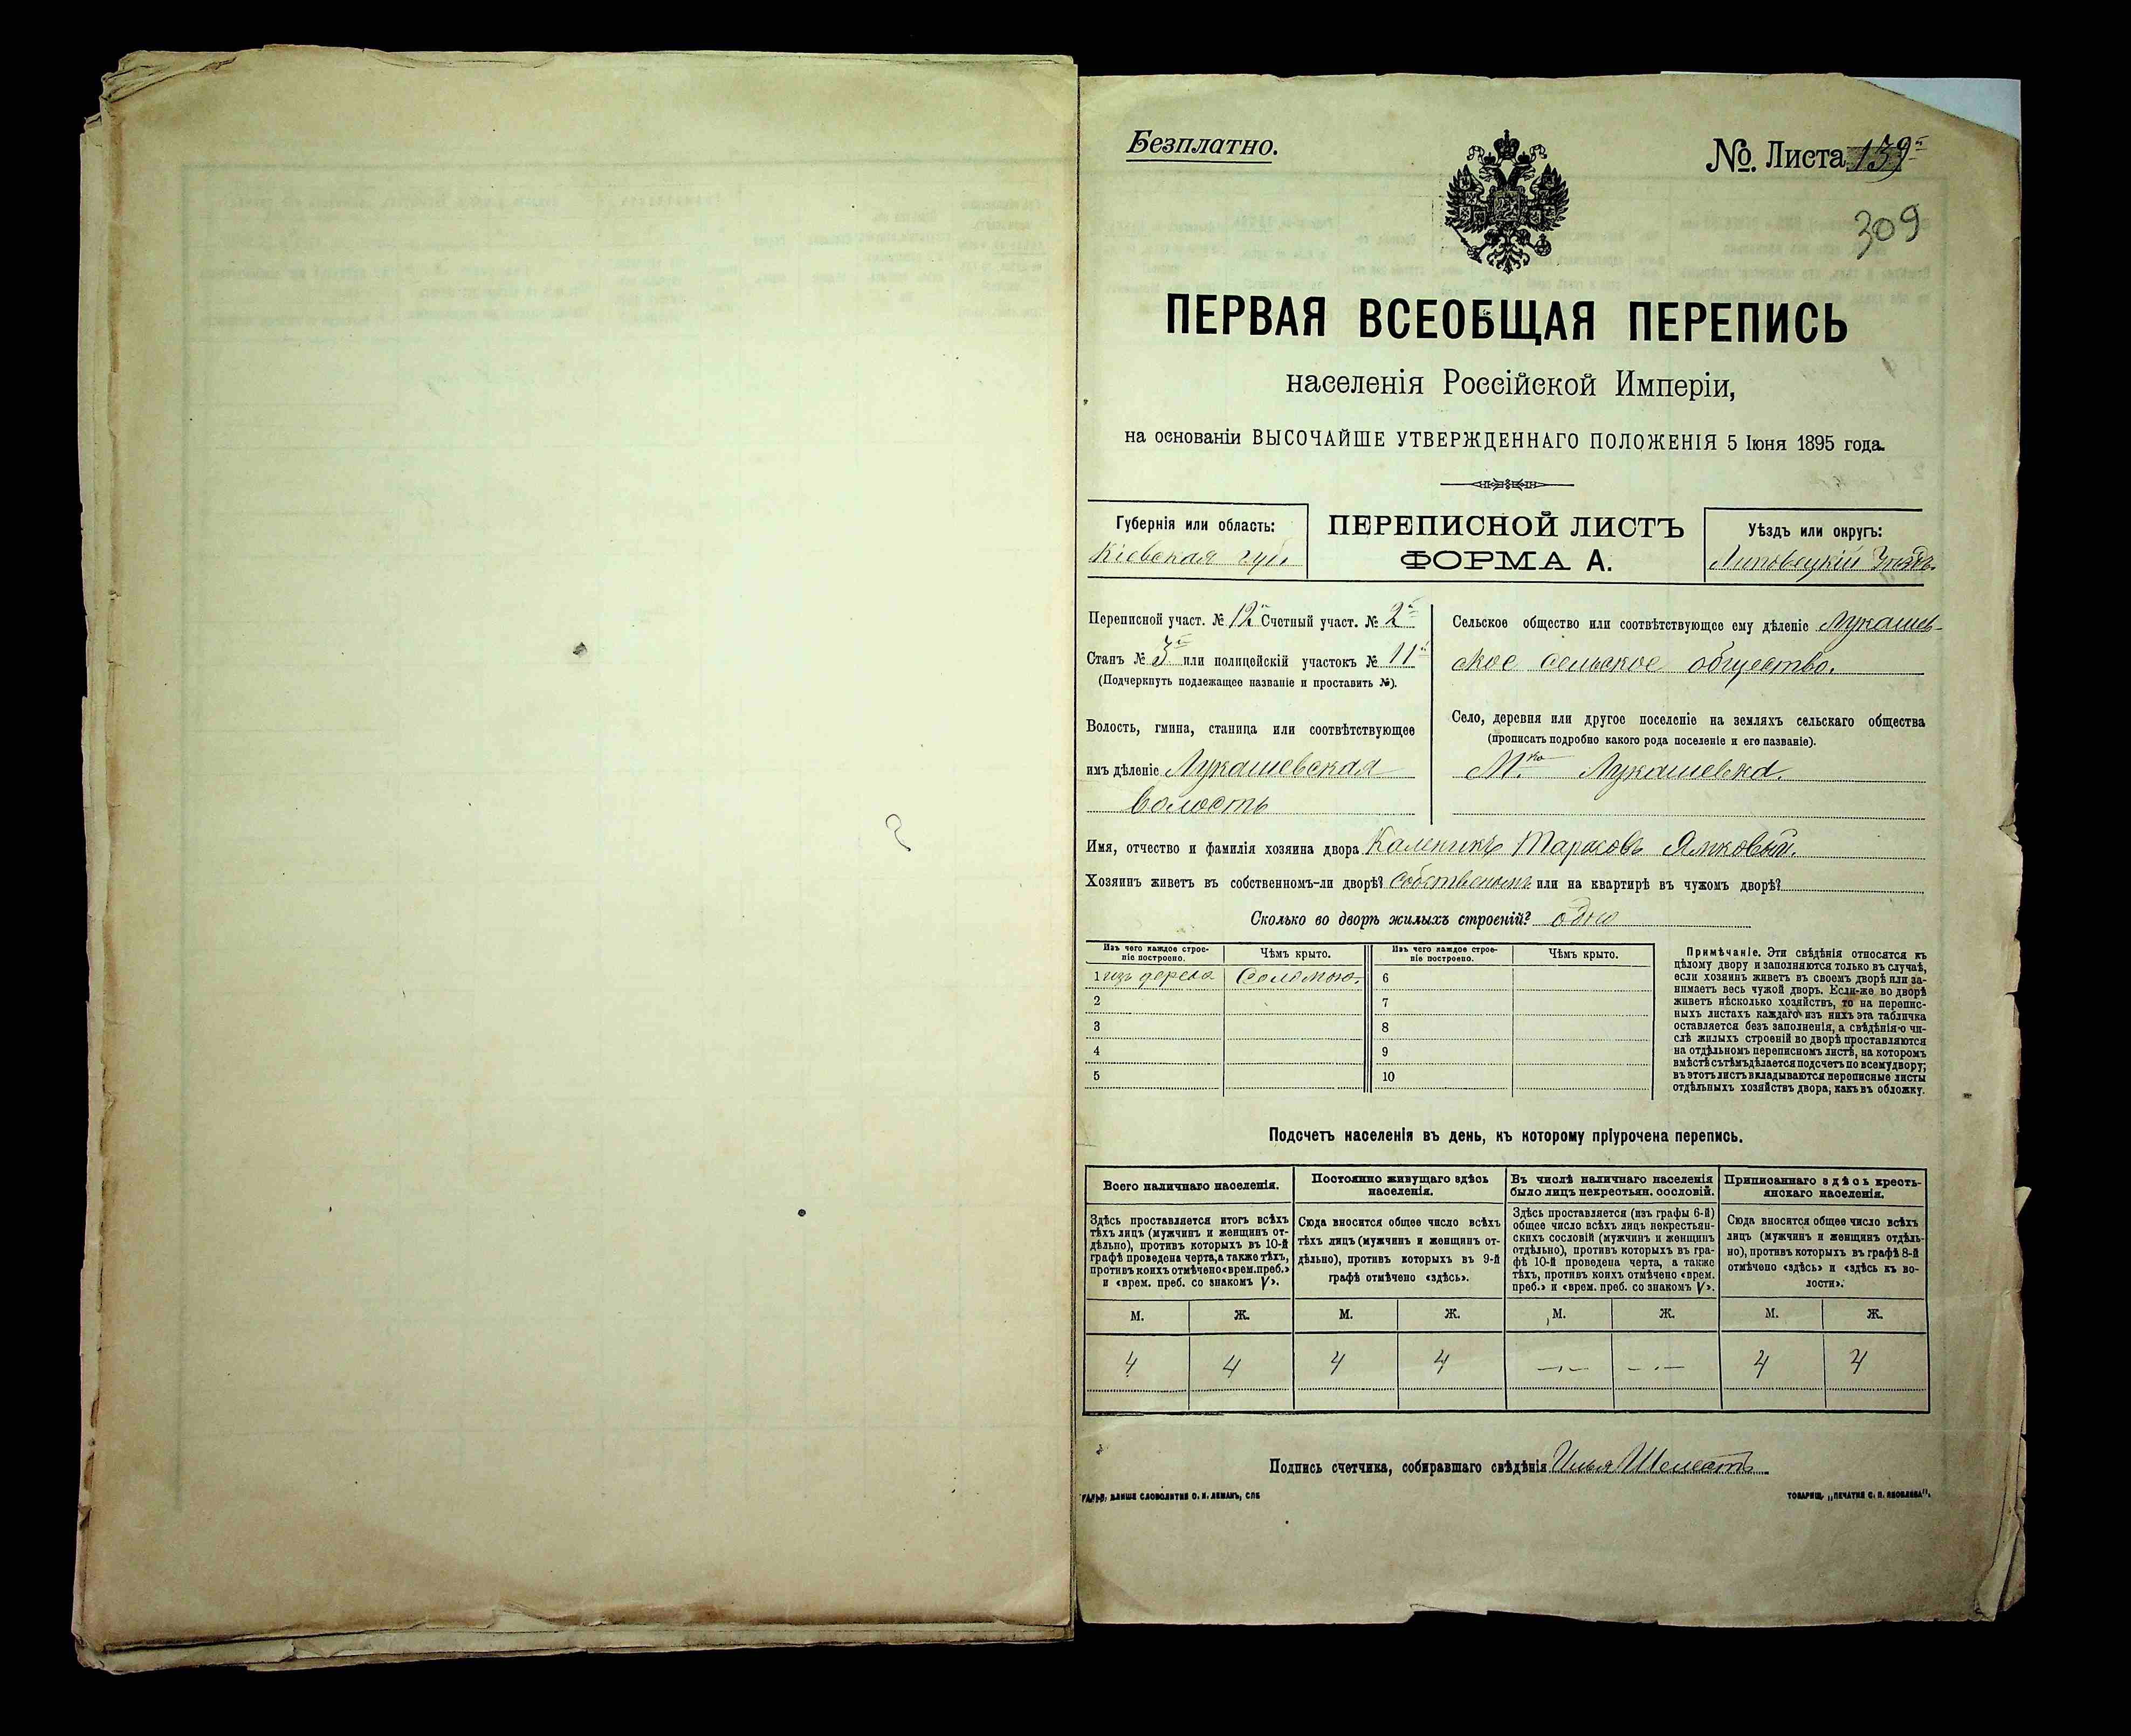 Безплатно.
№. Листа 139й
309
ПЕРВАЯ ВСЕОБЩАЯ ПЕРЕПИСЬ
населенія Россійской Имперіи,
на основаніи ВЫСОЧАЙШЕ УТВЕРЖДЕННАГО ПОЛОЖЕНІЯ 5 Іюня 1895 года.
Губернія или область:
Кіевская губ.
ПЕРЕПИСНОЙ ЛИСТЪ
ФОРМА А.
Уѣздъ или округъ:
Липовецкій Уѣздъ.
Переписной участ. № 12й Счетный участ. № 2й
Станъ № 3й или полицейскій участокъ № 11й
(Подчеркнуть подлежащее названіе и проставить №).
Волость, гмина, станица или соотвѣтствующее
имъ дѣленіе Лукашевская
волость
Сельское общество или соотвѣтствующее ему дѣленіе Лукашев-
ское сельское общество.
Село, деревня или другое поселеніе на земляхъ сельскаго общества
(прописать подробно какого рода поселеніе и его названіе).
М.ко Лукашевка.
Имя, отчество и фамилія хозяина двора Каленикъ Тарасовъ Ямковый.
Хозяинъ живетъ въ собственномъ-ли дворѣ? Собственномъ или на квартирѣ въ чужомъ дворѣ?
Сколько во дворѣ жилыхъ строеній? одно
Изъ чего каждое строе-
ніе построено.
Чѣмъ крыто.
Изъ чего каждое строе-
ніе построено.
Чѣмъ крыто.
1 изъ дерева Соломою. 6
2 7
3 8
4 9
5 10
Примѣчаніе. Эти свѣдѣнія относятся къ
цѣлому двору и заполняются только въ случаѣ,
если хозяинъ живетъ въ своемъ дворѣ или за-
нимаетъ весь чужой дворъ. Если-же во дворѣ
живетъ нѣсколько хозяйствъ, то на перепис-
ныхъ листахъ каждаго изъ нихъ эта табличка
оставляется безъ заполненія, а свѣдѣнія о чи-
слѣ жилыхъ строеній во дворѣ проставляются
на отдѣльномъ переписномъ листѣ, на которомъ
вмѣстѣ съ тѣмъ дѣлается подсчетъ по всему двору;
въ этотъ листъ вкладываются переписные листы
отдѣльныхъ хозяйствъ двора, какъ въ обложку.
Подсчетъ населенія въ день, къ которому пріурочена перепись.
Всего наличнаго населенія.
Здѣсь проставляется итогъ всѣхъ
тѣхъ лицъ (мужчинъ и женщинъ от-
дѣльно), противъ которыхъ въ 10-й
графѣ проведена черта, а также тѣхъ,
противъ коихъ отмѣчено «врем. преб.»
и «врем. преб. со знакомъ V».
Постоянно живущаго здѣсь
населенія.
Сюда вносится общее число всѣхъ
тѣхъ лицъ (мужчинъ и женщинъ от-
дѣльно), противъ которыхъ въ 9-й
графѣ отмѣчено «здѣсь».
Въ числѣ наличнаго населенія
было лицъ некрестьян. сословій.
Здѣсь проставляется (изъ графы 6-й)
общее число всѣхъ лицъ некрестьян-
скихъ сословій (мужчинъ и женщинъ
отдѣльно), противъ которыхъ въ гра-
фѣ 10-й проведена черта, а также
тѣхъ, противъ коихъ отмѣчено «врем.
преб.» и «врем. преб. со знакомъ V».
Приписаннаго здѣсь кресть-
янскаго населенія.
Сюда вносится общее число всѣхъ
лицъ (мужчинъ и женщинъ отдѣль-
но), противъ которыхъ въ графѣ 8-й
отмѣчено «здѣсь» и «здѣсь къ во-
лости».
М. Ж. М. Ж. М. Ж. М. Ж.
4 4 4 4 —·— —·— 4 4
Подпись счетчика, собиравшаго свѣдѣнія Илья Шелестъ
КЛИШЕ СЛОВОЛИТНИ О. И. ЛЕМАНЪ, СПБ
ТОВАРИЩ. „ПЕЧАТНЯ С. П. ЯКОВЛЕВА".